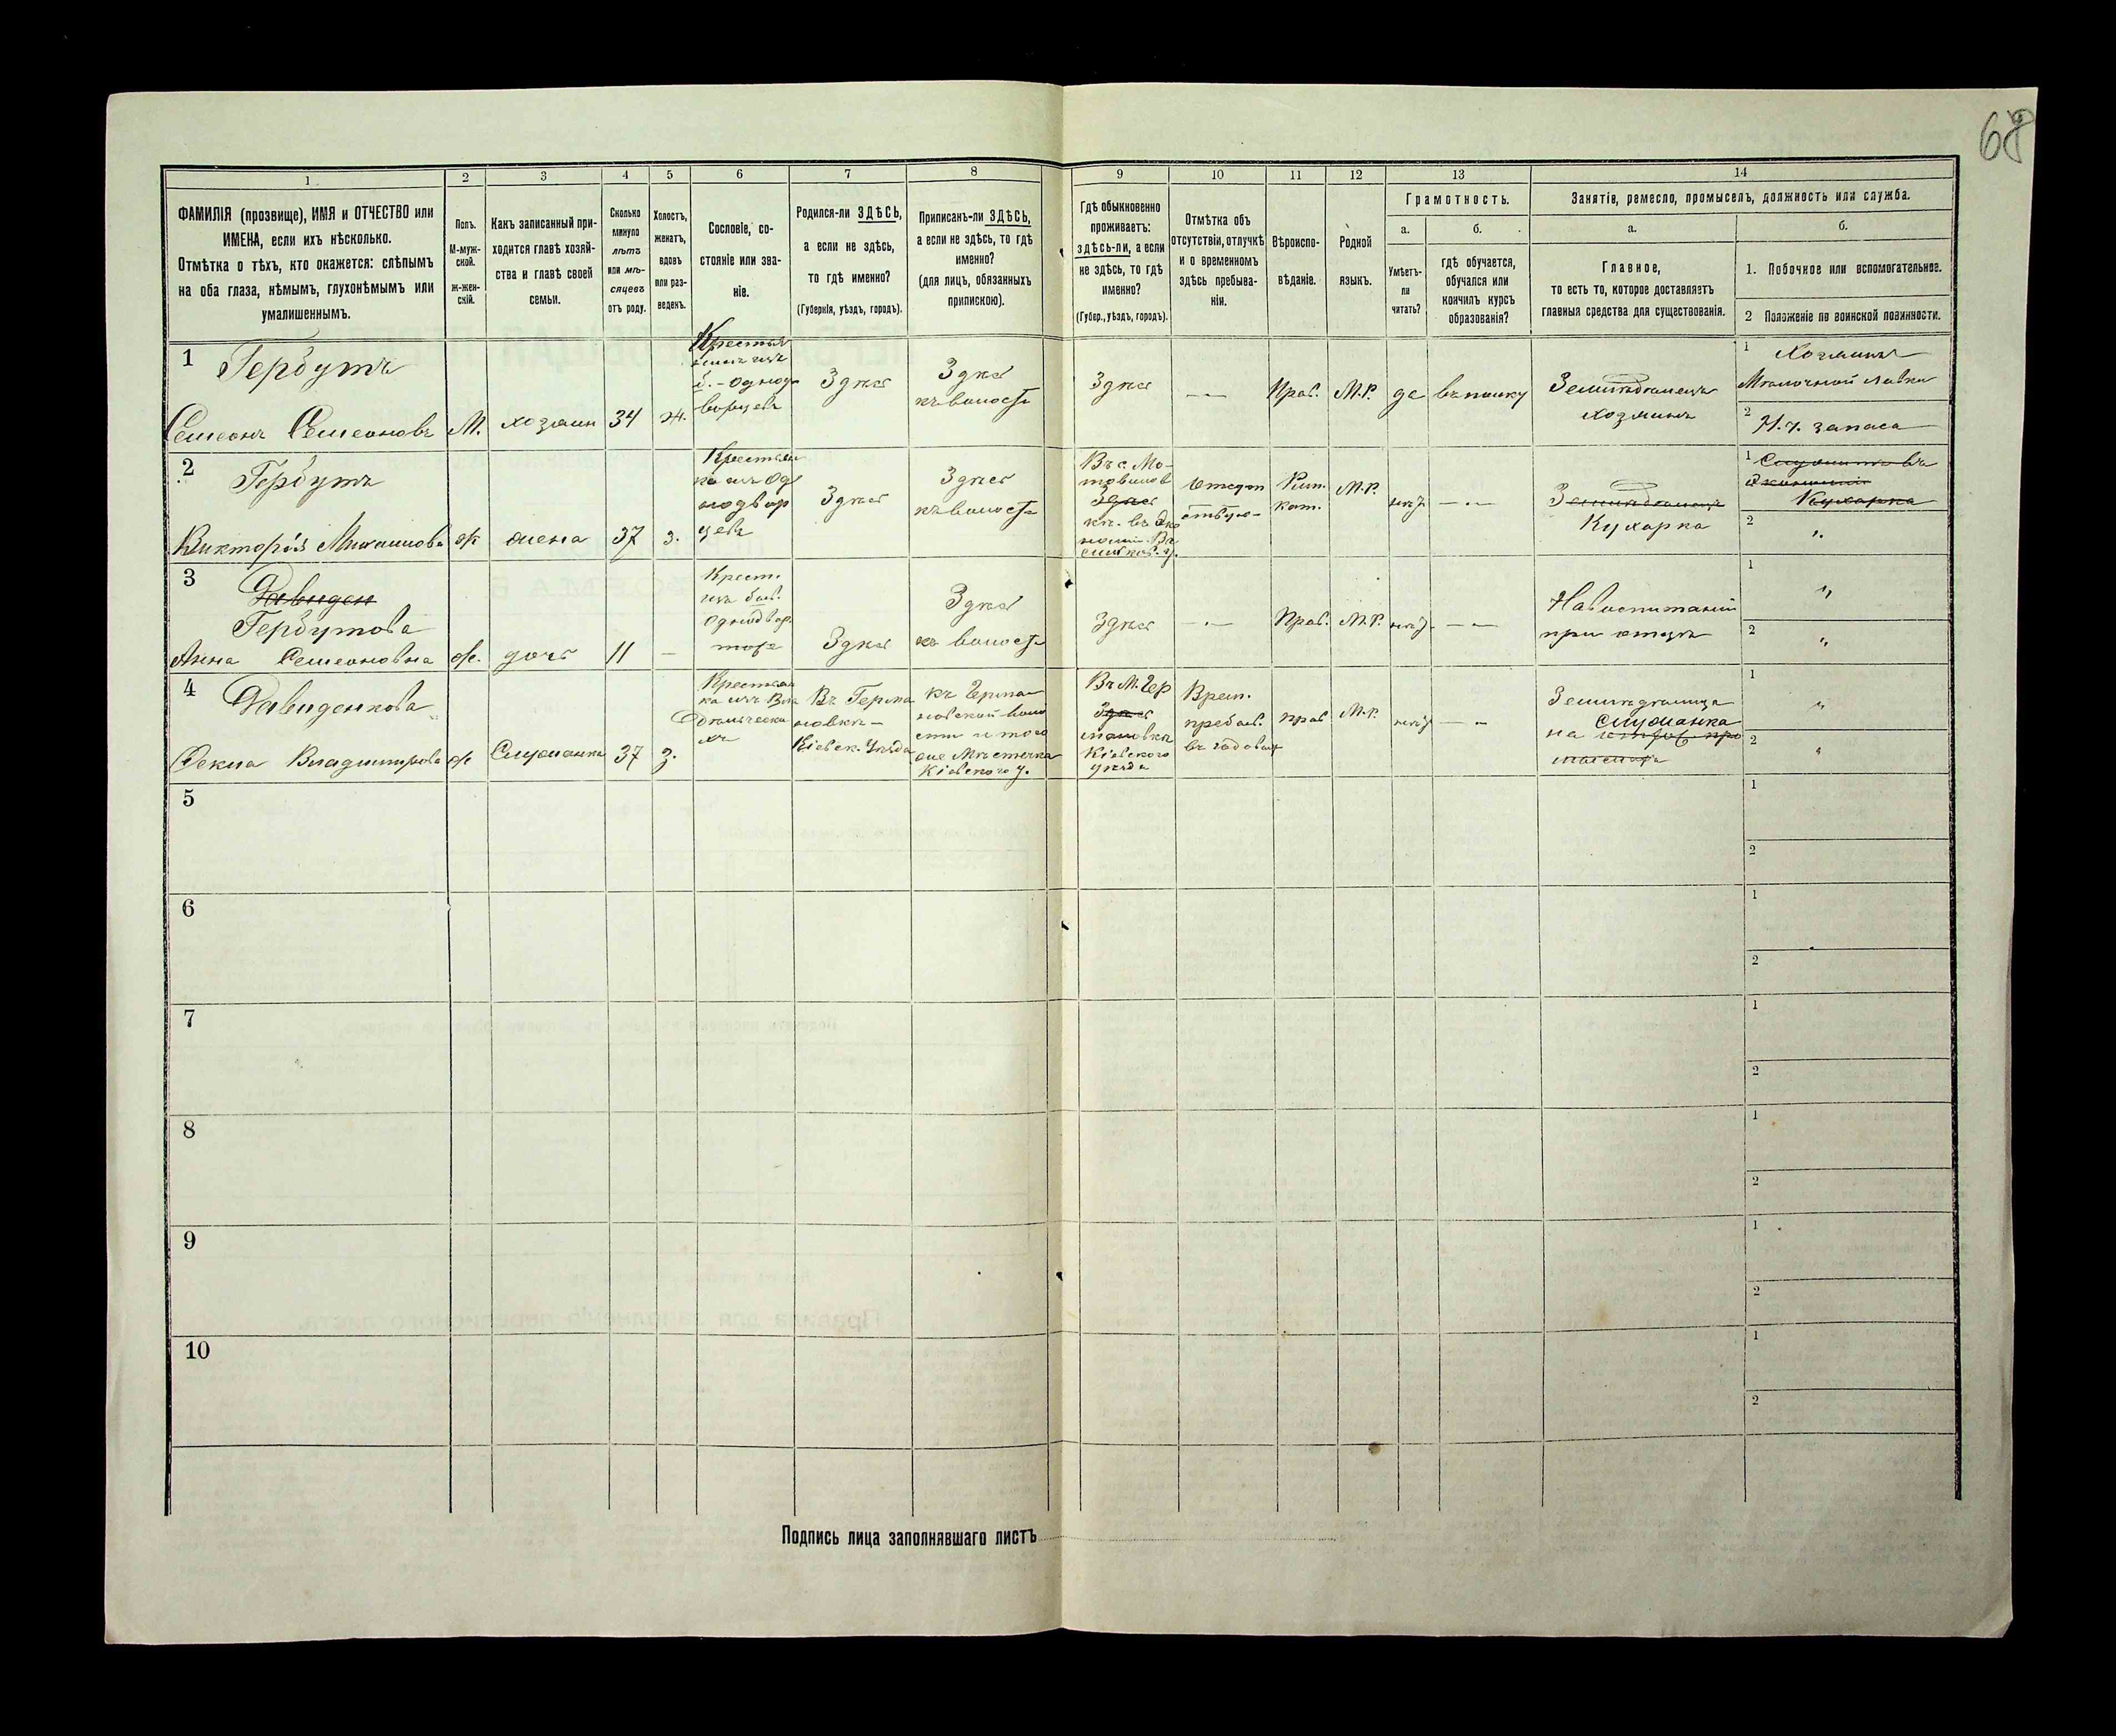 68
1
2
3
4
5
6
7
8
9
10
11
12
13
14
ФАМИЛІЯ (прозвище), ИМЯ и ОТЧЕСТВО или
ИМЕНА, если ихъ нѣсколько.
Отмѣтка о тѣхъ, кто окажется: слѣпымъ
на оба глаза, нѣмымъ, глухонѣмымъ или
умалишеннымъ.
Полъ.
М-муж-
ской.
ж-жен-
скій.
Какъ записанный при-
ходится главѣ хозяй-
ства и главѣ своей
семьи.
Сколько
минуло
лѣтъ
или мѣ-
сяцевъ
отъ роду.
Холостъ,
женатъ,
вдовъ
или раз-
веденъ.
Сословіе, со-
стояніе или зва-
ніе.
Родился-ли ЗДѢСЬ,
а если не здѣсь,
то гдѣ именно?
(Губернія, уѣздъ, городъ).
Приписанъ-ли ЗДѢСЬ,
а если не здѣсь, то гдѣ
именно?
(для лицъ, обязанныхъ
припискою).
Гдѣ обыкновенно
проживаетъ:
здѣсь-ли, а если
не здѣсь, то гдѣ
именно?
(Губер., уѣздъ, городъ).
Отмѣтка объ
отсутствіи, отлучкѣ
и о временномъ
здѣсь пребыва-
ніи.
Вѣроиспо-
вѣданіе.
Родной
языкъ.
Грамотность.
а.
Умѣетъ-
ли
читать?
б.
гдѣ обучается,
обучался или
кончилъ курсъ
образованія?
Занятіе, ремесло, промыселъ, должность или служба.
а.
Главное,
то есть то, которое доставляетъ
главныя средства для существованія.
б.
1. Побочное или вспомогательное.
2 Положеніе по воинской повинности.
1
Гербутъ
Семеонъ Семеоновъ
М.
хозяин
34
ж.
Крестья
нинъ изъ
б.-однод
ворцевъ
Здѣсь
Здѣсь
къ волости
Здѣсь
Прав.
М.Р.
да
Земледѣлецъ
хозяинъ
1
Хозяинъ
Молочной лавки
2
Н.ч. запаса
2
Гербутъ
Викторія Михаилова
ж
жена
37
з.
Крестьян
ка изъ Од
нодвор
цевъ
Здѣсь
Здѣсь
къ волости
Въ с. Мо-
товилов
Здѣсь
Рим.
кат.
М.Р.
нѣт
Земледѣлица
Кухарка
1
Кухарка
2
3
Давиден
Гербутова
Анна Семеоновна
ж.
дочь
11
Крест.
изъ быв.
Здѣсь
Здѣсь
къ волости
Здѣсь
Прав.
М.Р.
нѣт
при отцѣ
1
2
4
Давиденкова
Фекла Владимирова
ж
Служанка
37
з.
Въ Герма
новкѣ
Кіевск. уѣзда
къ Герма
новской воло
сти и того
же Мѣстечка
Кіевского у.
Въ М. Гер
Здѣсь
мановкѣ
Кіевского
уѣзда
Врем.
пребыв.
прав
М.Р.
нѣт
Земледѣлица
Служанка
1
2
5
1
2
6
1
2
7
1
2
8
1
2
9
1
2
10
1
2
Подпись лица заполнявшаго листъ